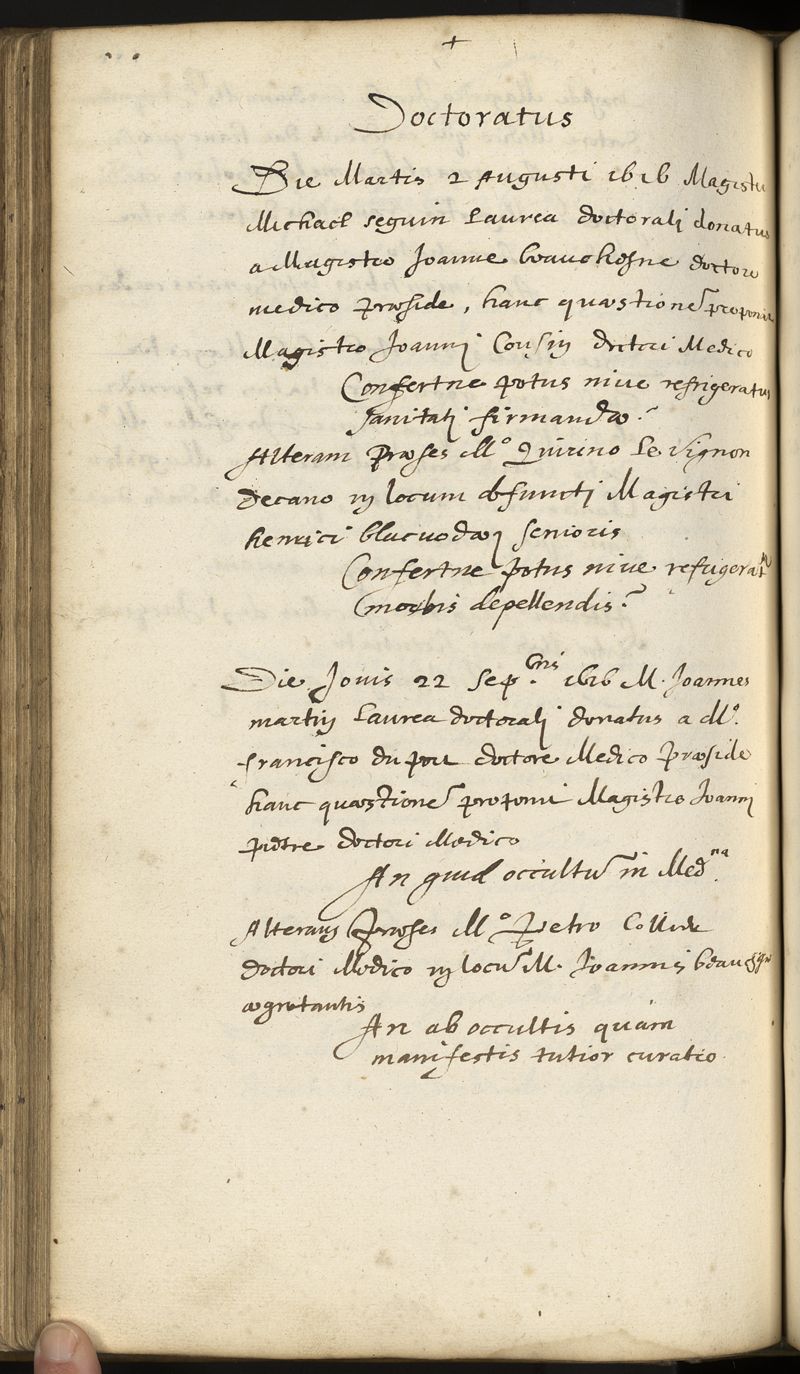 +
Doctoratus
Die Martis 2 Augusti 1616 Magister
Michael seguin Laurea doctorali donatus
a Magistro Joanne beauchesne doctore
medico præside, hanc quæstionē proponit
Magistro Joanni Cousin doctori Medico
Confertne potus nive refrigeratus
sanitati firmandæ?
Alteram præses Mº Quirino Le Vignon
decano in locum defuncti Magistri
henrici blacvodæi senioris
Confertne potus nive refrigeratus
morbis depellendis?
Die Jovis 22 Sep.bris 1616 M. Joannes
martin Laurea doctorali donatus a Mº.
francisco du port doctore Medico præside
hanc quæstionē proponit Magistro Joanni
pietre doctori Medico
An quid occultū in Med.na
Alteram præses Mº petro Collier
doctori Medico in locū M. Joannis
ægrotantis
An ab occultis quàm
manifestis tutior curatio.